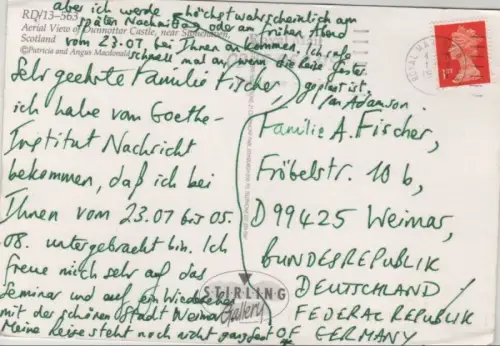 aber ich werde höchstwahrscheinlich am
späten Nachmittag oder am frühen Abend
vom 23.07 bei Ihnen ankommen. Ich rufe
schnell mal an, wenn die Reise fester
geplant ist.
Ian Adamson.
RD/13-563
Aerial View of Dunnottar Castle, near Stonehaven,
Scotland
©Patricia and Angus Macdonald
Sehr geehrte Familie Fischer,
ich habe vom Goethe-
Institut Nachricht
bekommen, daß ich bei
Ihnen vom 23.07 bis 05.
08. untergebracht bin. Ich
freue mich sehr auf das
Seminar und auf ein Wiedersehen
mit der schönen Stadt Weimar.
Meine Reise steht noch nicht ganz fest
Familie A. Fischer,
Fröbelstr. 10 b,
D99425 Weimar,
BUNDESREPUBLIK
DEUTSCHLAND
FEDERAL REPUBLIK
OF GERMANY
STIRLING
Gallery
1ST